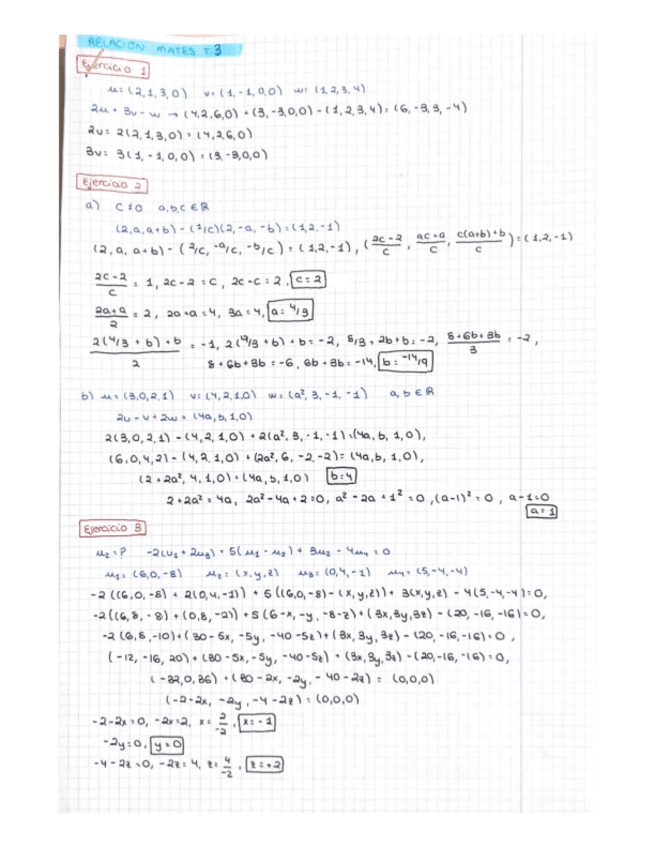 RELACIÓN MATES T.3
Ejercicio 1
u = (2,1,3,0) v = (1,-1,0,0) w = (1,2,3,4)
2u + 3v - w → (4,2,6,0) + (3,-3,0,0) - (1,2,3,4) = (6,-3,3,-4)
2u = 2(2,1,3,0) = (4,2,6,0)
3v = 3(1,-1,0,0) = (3,-3,0,0)
Ejercicio 2
a) C≠0 a,b,c ∈ R
(2,a,a+b) - (1/c)(2,-a,-b) = (1,2,-1)
(2,a,a+b) - (2/c, -a/c, -b/c) = (1,2,-1), (2c-2/c, ac+a/c, c(a+b)+b/c) = (1,2,-1)
2c-2/c = 1, 2c-2 = c, 2c-c = 2, c=2
2a+a/2 = 2, 2a+a = 4, 3a = 4, a = 4/3
2(4/3 + b) + b/2 = -1, 2(4/3 + b) + b = -2, 8/3 + 2b + b = -2, 8+6b+3b/3 = -2,
8 + 6b + 3b = -6, 6b + 3b = -14, b = -14/9
b) u = (3,0,2,1) v = (4,2,1,0) w = (a², 3, -1, -1) a, b ∈ R
2u - v + 2w = (4a, b, 1, 0)
2(3,0,2,1) - (4,2,1,0) + 2(a²,3,-1,-1) = (4a,b,1,0),
(6,0,4,2) - (4,2,1,0) + (2a²,6,-2,-2) = (4a,b,1,0),
(2 + 2a², 4, 1, 0) = (4a, b, 1, 0) b=4
2 + 2a² = 4a, 2a² - 4a + 2 = 0, a² - 2a + 1² = 0, (a-1)² = 0, a-1 = 0
a = 1
Ejercicio 3
u₂ = ? -2(u₁ + 2u₃) + 5(u₁ - u₂) + 3u₂ - 4u₄ = 0
u₁ = (6,0,-8) u₂ = (x,y,z) u₃ = (0,4,-1) u₄ = (5,-4,-4)
-2((6,0,-8) + 2(0,4,-1)) + 5((6,0,-8) - (x,y,z)) + 3(x,y,z) - 4(5,-4,-4) = 0,
-2((6,8,-8) + (0,8,-2)) + 5(6-x, -y, -8-z) + (3x,3y,3z) - (20,-16,-16) = 0,
-2(6,8,-10) + (30-5x, -5y, -40-5z) + (3x,3y,3z) - (20,-16,-16) = 0,
(-12,-16,20) + (30-5x, -5y, -40-5z) + (3x,3y,3z) - (20,-16,-16) = 0,
(-32,0,36) + (30-2x, -2y, -40-2z) = (0,0,0)
(-2-2x, -2y, -4-2z) = (0,0,0)
-2-2x = 0, -2x = 2, x = 2/-2, x = -1
-2y = 0, y = 0
-4-2z = 0, -2z = 4, z = 4/-2, z = -2